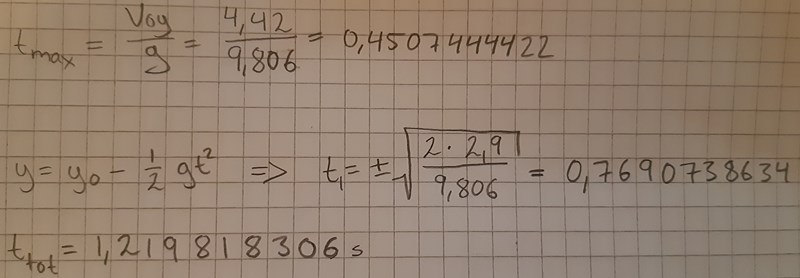 t_max = V_oy/g = 4,42/9,806 = 0,4507444422
y = y_0 - 1/2 gt² => t_1 = ±√(2 · 2,9/9,806) = 0,7690738634
t_tot = 1,219818306 s